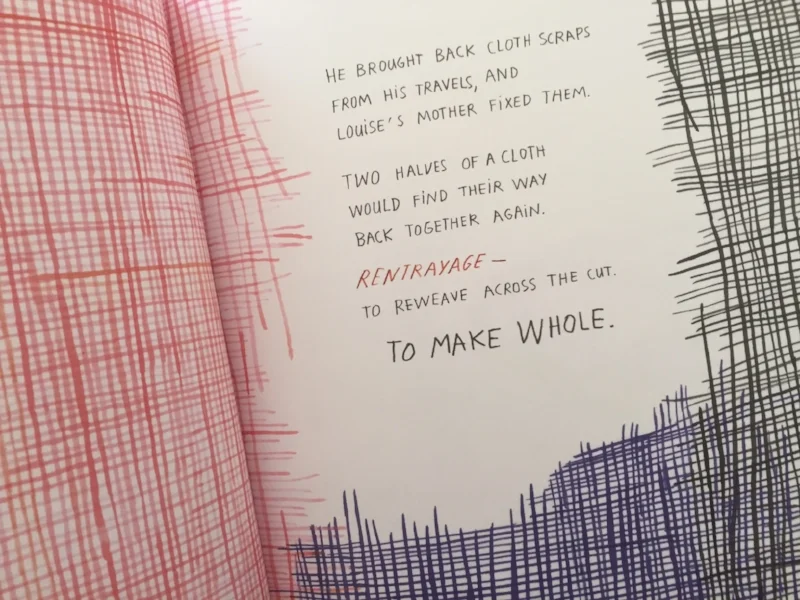 HE BROUGHT BACK CLOTH SCRAPS
FROM HIS TRAVELS, AND
LOUISE'S MOTHER FIXED THEM.
TWO HALVES OF A CLOTH
WOULD FIND THEIR WAY
BACK TOGETHER AGAIN.
RENTRAYAGE—
TO REWEAVE ACROSS THE CUT.
TO MAKE WHOLE.